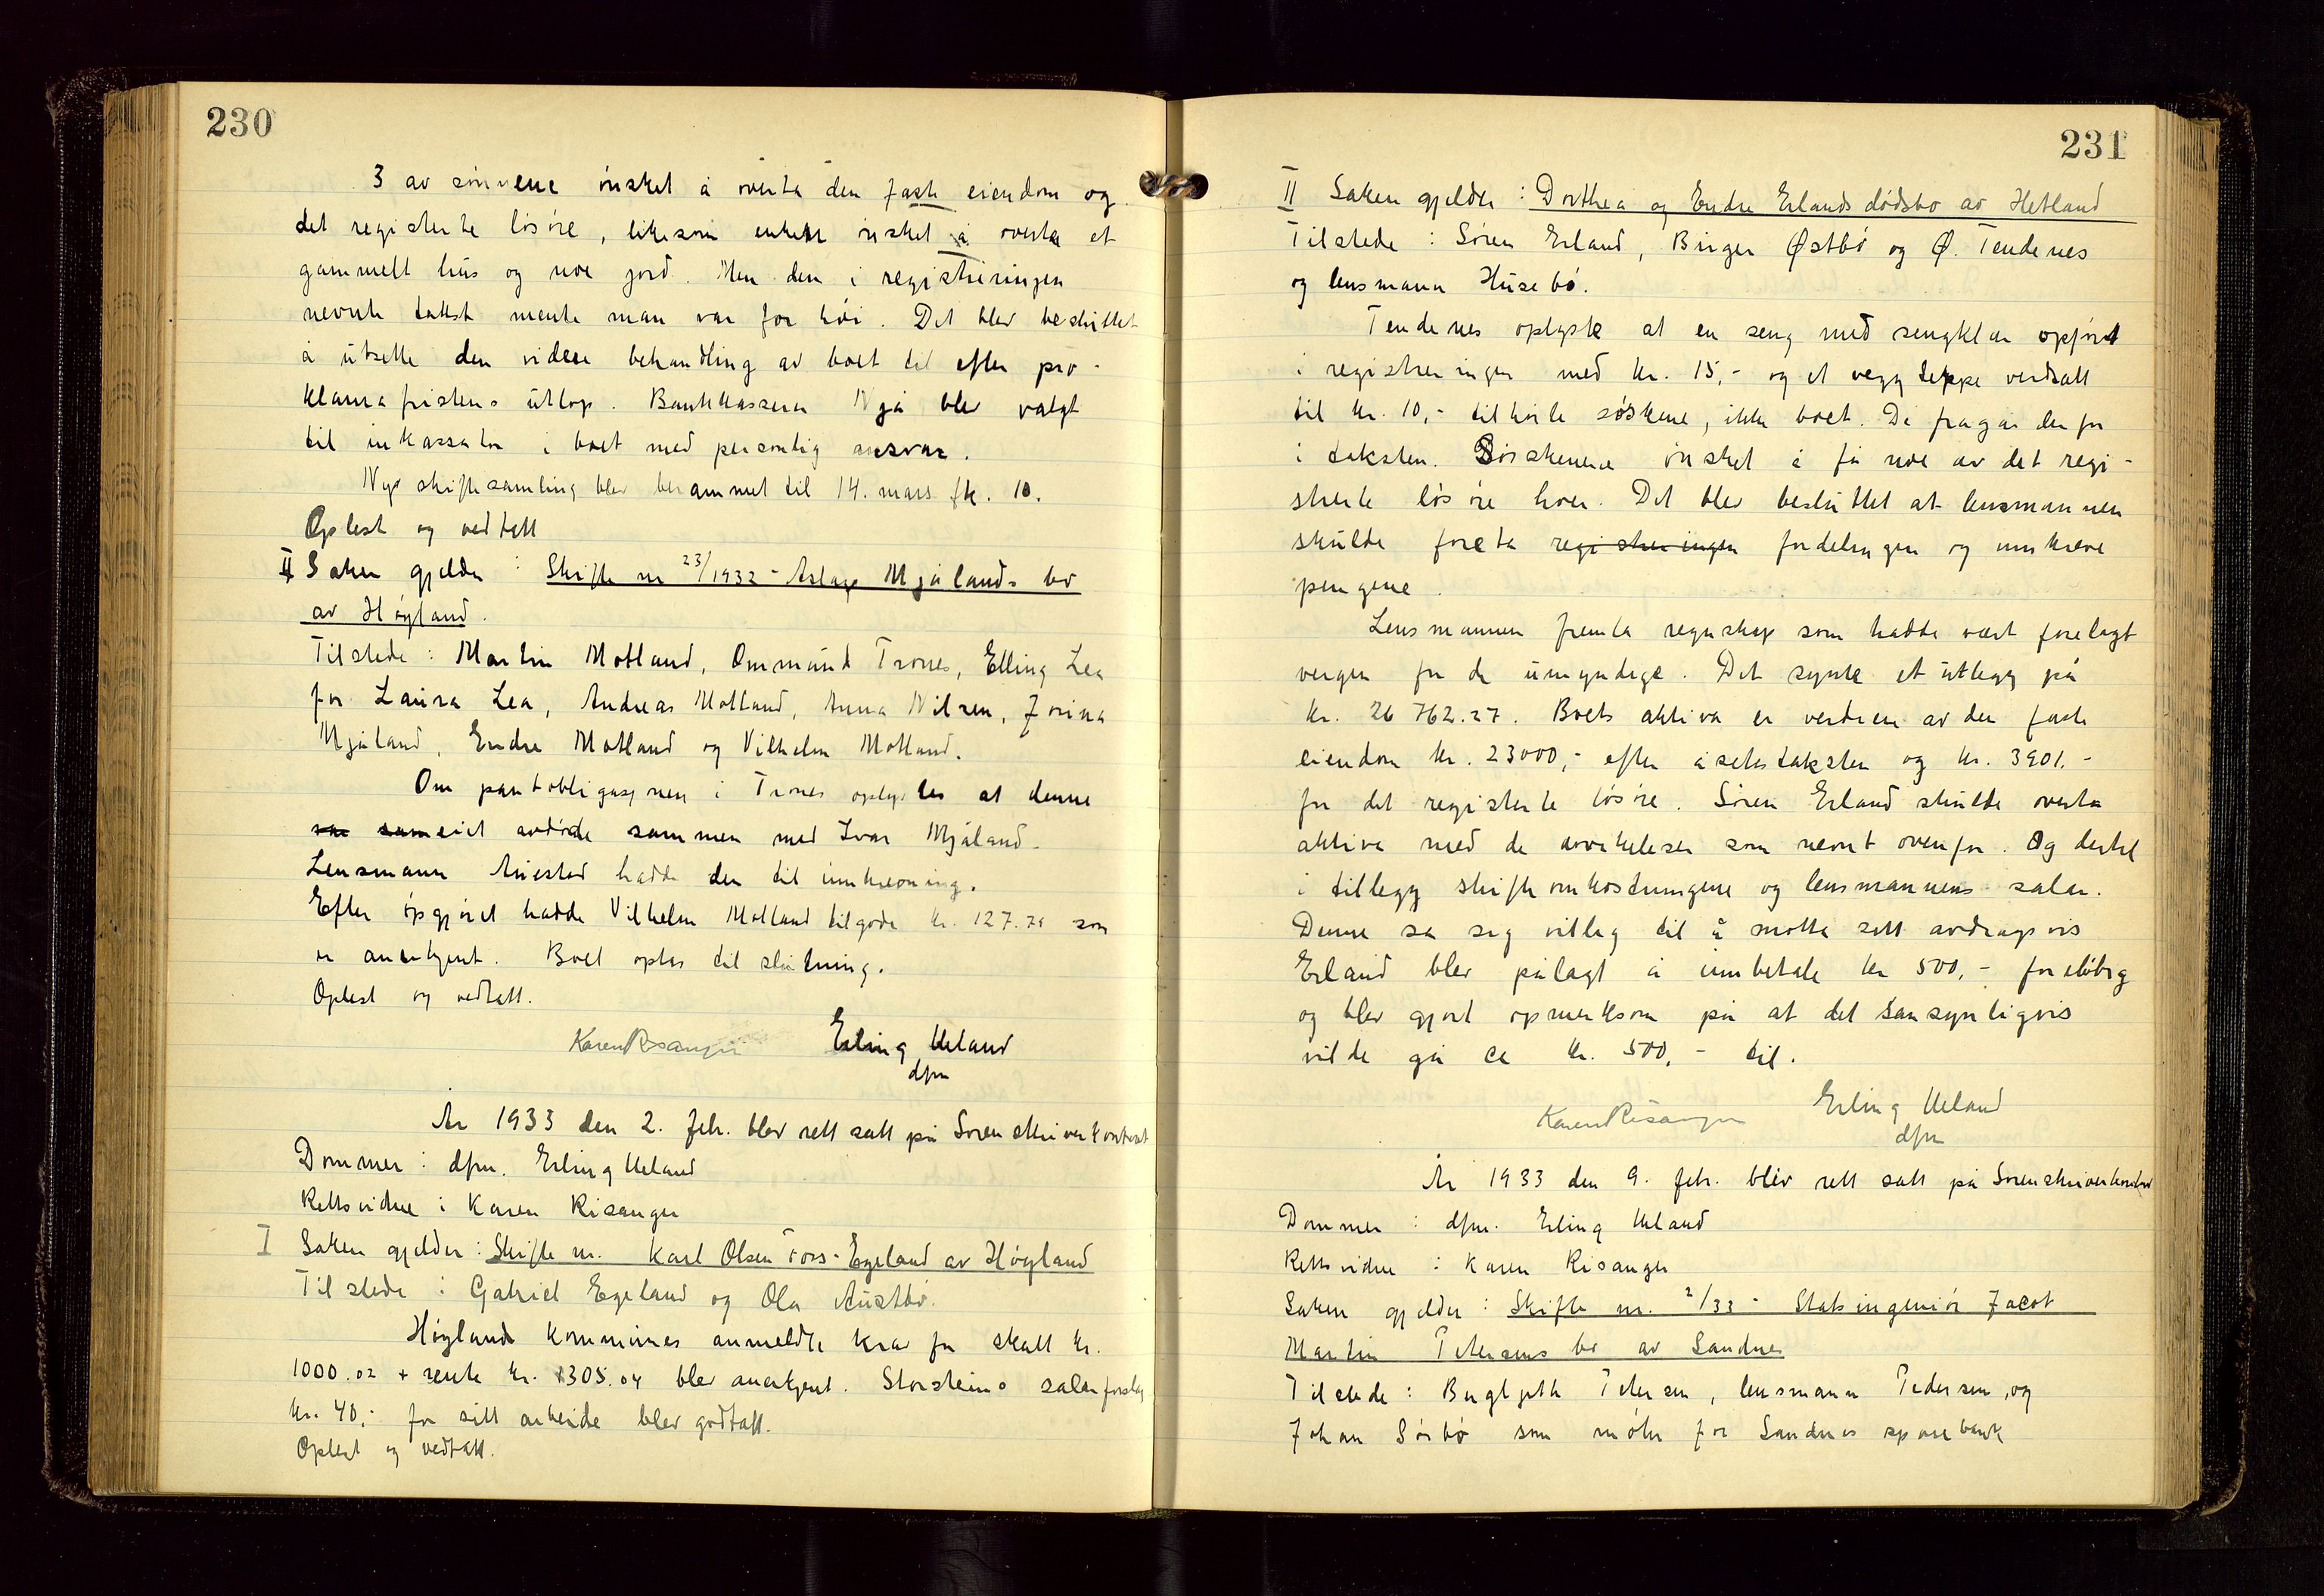 230
3 av sönnene önsket å overta den faste eiendom og
det registerte lösöre, likesom enken önsket å overta et
gammelt hus og noe jord. Men den i registreringen
nevnte takst mente man var for höi. Det blev besluttet
å utsette den videre behandling av boet til efter pro-
klamafristens utlop. Bankkasserer Njå blev valgt
til inkassator i boet med personlig ansvar.
Ny skiftesamling blev berammet til 14. mars fk. 10.
Oplest og vedtatt
II Saken gjelder : Skifte nr 23/1932 - Aslaug Mjålands bo
av Höyland.
Tilstede : Martin Motland, Ommund Trones, Elling Lea
for Laura Lea, Andreas Motland, Anna Nilsen, Jorina
Mjåland, Endre Motland og Vilhelm Motland.
Om pantobligasjonen i Trones oplystes at denne
var sam eiet avdöde sammen med Ivar Mjåland.
Lensmann Auestad hadde den til innkrevning.
Efter opgjöret hadde Vilhelm Motland tilgode kr. 127.71 som
er anerkjent. Boet optas til slutning.
Oplest og vedtatt.
Karen Risanger Erling Ueland
dfm
År 1933 den 2. febr. blev rett satt på Sorenskriverkontoret
Dommer : dfm. Erling Ueland
Rettsvidne : Karen Risanger
I Saken gjelder : Skifte nr. Karl Olsen Foss-Egeland av Höyland
Tilstede : Gabriel Egeland og Ola Austbö.
Höyland kommunes anmeldte krav for skatt kr.
1000.02 + rente kr. 1305.04 blev anerkjent. Storsteins salærforslag
kr. 40,- for sitt arbeide blev godtatt.
Oplest og vedtatt.
231
II Saken gjelder : Dorthea og Endre Erlands dödsbo av Hetland
Tilstede : Sören Erland, Birger Østbö og Ø. Tendenes
og lensmann Husebö.
Tendenes oplyste at en seng med sengklær opfört
i registreringen med kr. 15,- og et veggteppe verdsatt
til kr. 10,- tilhörte söskene, ikke boet. De fragår derfor
i taksten. Söskenene önsket å få noe av det regi-
sterte lösöre hver. Det blev besluttet at lensmannen
skulde foreta registreringen fordelingen og innkreve
pengene.
Lensmannen fremla regnskap som hadde vært forelagt
vergen for de umyndige. Det synte et utlegg på
kr. 26 762.27. Boets aktiva er verdien av den faste
eiendom kr. 23000,- efter åsetestaksten og kr. 3901.-
for det registerte lösöre. Sören Erland skulde overta
aktiva med de avvikelser som nevnt ovenfor. Og dertil
i tillegg skifteomkostningene og lensmannens salær.
Denne sa seg villig til å motta sitt avdragsvis
Erland blev pålagt å innbetale kr 500,- forelöbig
og blev gjort opmerksom på at det sansynligvis
vilde gå ca kr. 500,- til.
Karen Risanger Erling Ueland
dfm
År 1933 den 9. febr. blev rett satt på Sorenskriverkontoret
Dommer : dfm. Erling Ueland
Rettsvidne : Karen Risanger
Saken gjelder : Skifte nr. 2/33 - Statsingeniör Jacob
Martin Petersens bo av Sandnes
Tilstede : Petersen, lensmann Pedersen, og
Johan Sörbö som möter for Sandnes sparebank